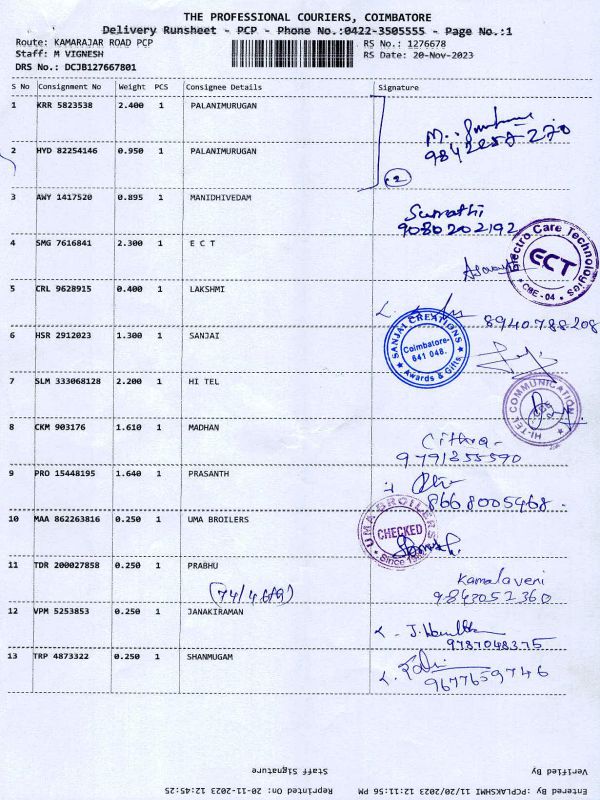 THE PROFESSIONAL COURIERS, COIMBATORE
Delivery Runsheet - PCP - Phone No.:0422-3505555 - Page No.:1
Route: KAMARAJAR ROAD PCP RS No.: 1276678
Staff: M VIGNESH RS Date: 20-Nov-2023
DRS No.: DCJB127667801
S No Consignment No Weight PCS Consignee Details Signature
1 KRR 5823538 2.400 1 PALANIMURUGAN
2 HYD 82254146 0.950 1 PALANIMURUGAN
2
3 AWY 1417520 0.895 1 MANIDHIVEDAM
Sumathi
9080202192
4 SMG 7616841 2.300 1 E C T
Electro Care Technologies
ECT
CBE - 04
5 CRL 9628915 0.400 1 LAKSHMI
8940788208
6 HSR 2912023 1.300 1 SANJAI
SANJAI CREATIONS
Coimbatore-
641 046.
Awards & Gifts
7 SLM 333068128 2.200 1 HI TEL
HI-TEL COMMUNICATION
8 CKM 903176 1.610 1 MADHAN
Cithra
9791355590
9 PRO 15448195 1.640 1 PRASANTH
8668005468
10 MAA 862263816 0.250 1 UMA BROILERS
UMA BROILERS
CHECKED
11 TDR 200027858 0.250 1 PRABHU
Kamalaveni
9843052360
12 VPM 5253853 0.250 1 JANAKIRAMAN
9787048375
13 TRP 4873322 0.250 1 SHANMUGAM
9677659746
Staff Signature Verified By
Entered By: PCPLAKSHMI 11/20/2023 12:11:56 PM Reprinted On: 20-11-2023 12:45:25